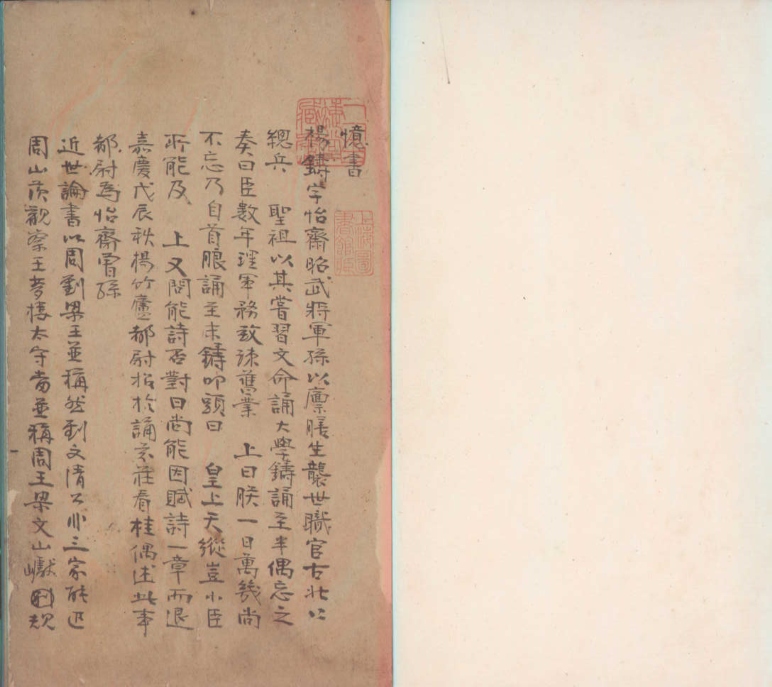 憶書
楊鑄字怡齋昭武將軍孫以廩膳生襲世職官古北口
總兵 聖祖以其嘗習文命誦大學鑄誦至半偶忘之
奏曰臣數年理軍務致疎舊業 上曰朕一日萬幾尚
不忘乃自首朖誦至末鑄叩頭曰 皇上天縱豈小臣
所能及 上又問能詩否對曰尚能因賦詩一章而退
嘉慶戊辰秋楊竹廬都尉招於誦芬莊看桂偶述此事
都尉為怡齋曾孫
近世論書以周劉梁王並稱然劉文清公非三家能匹
周山茨觀察王夢樓太守當並稱周王梁文山巘規